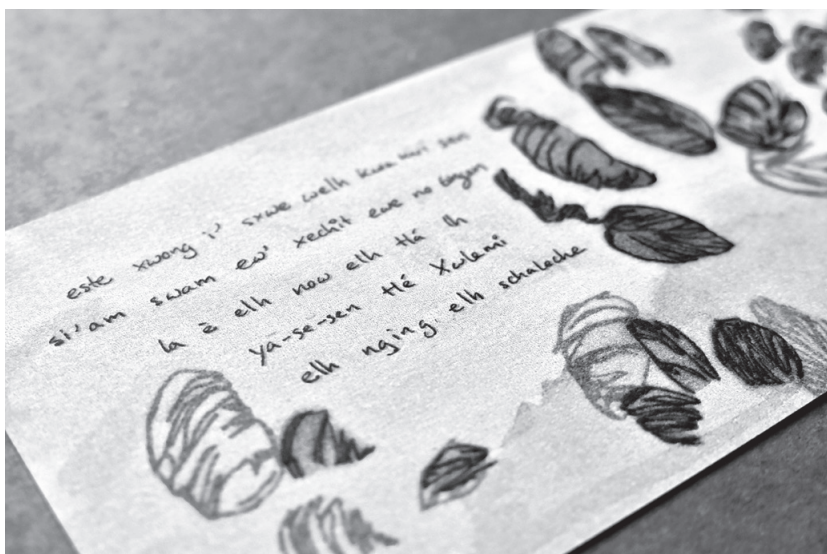 este xwong i' sxwe welh kwa mui sen
si'am swam ew' xechit ewe no
la ē elh now elh tlá lh
yā-se-sen tlé Xwlemi
elh nging. elh schaleche